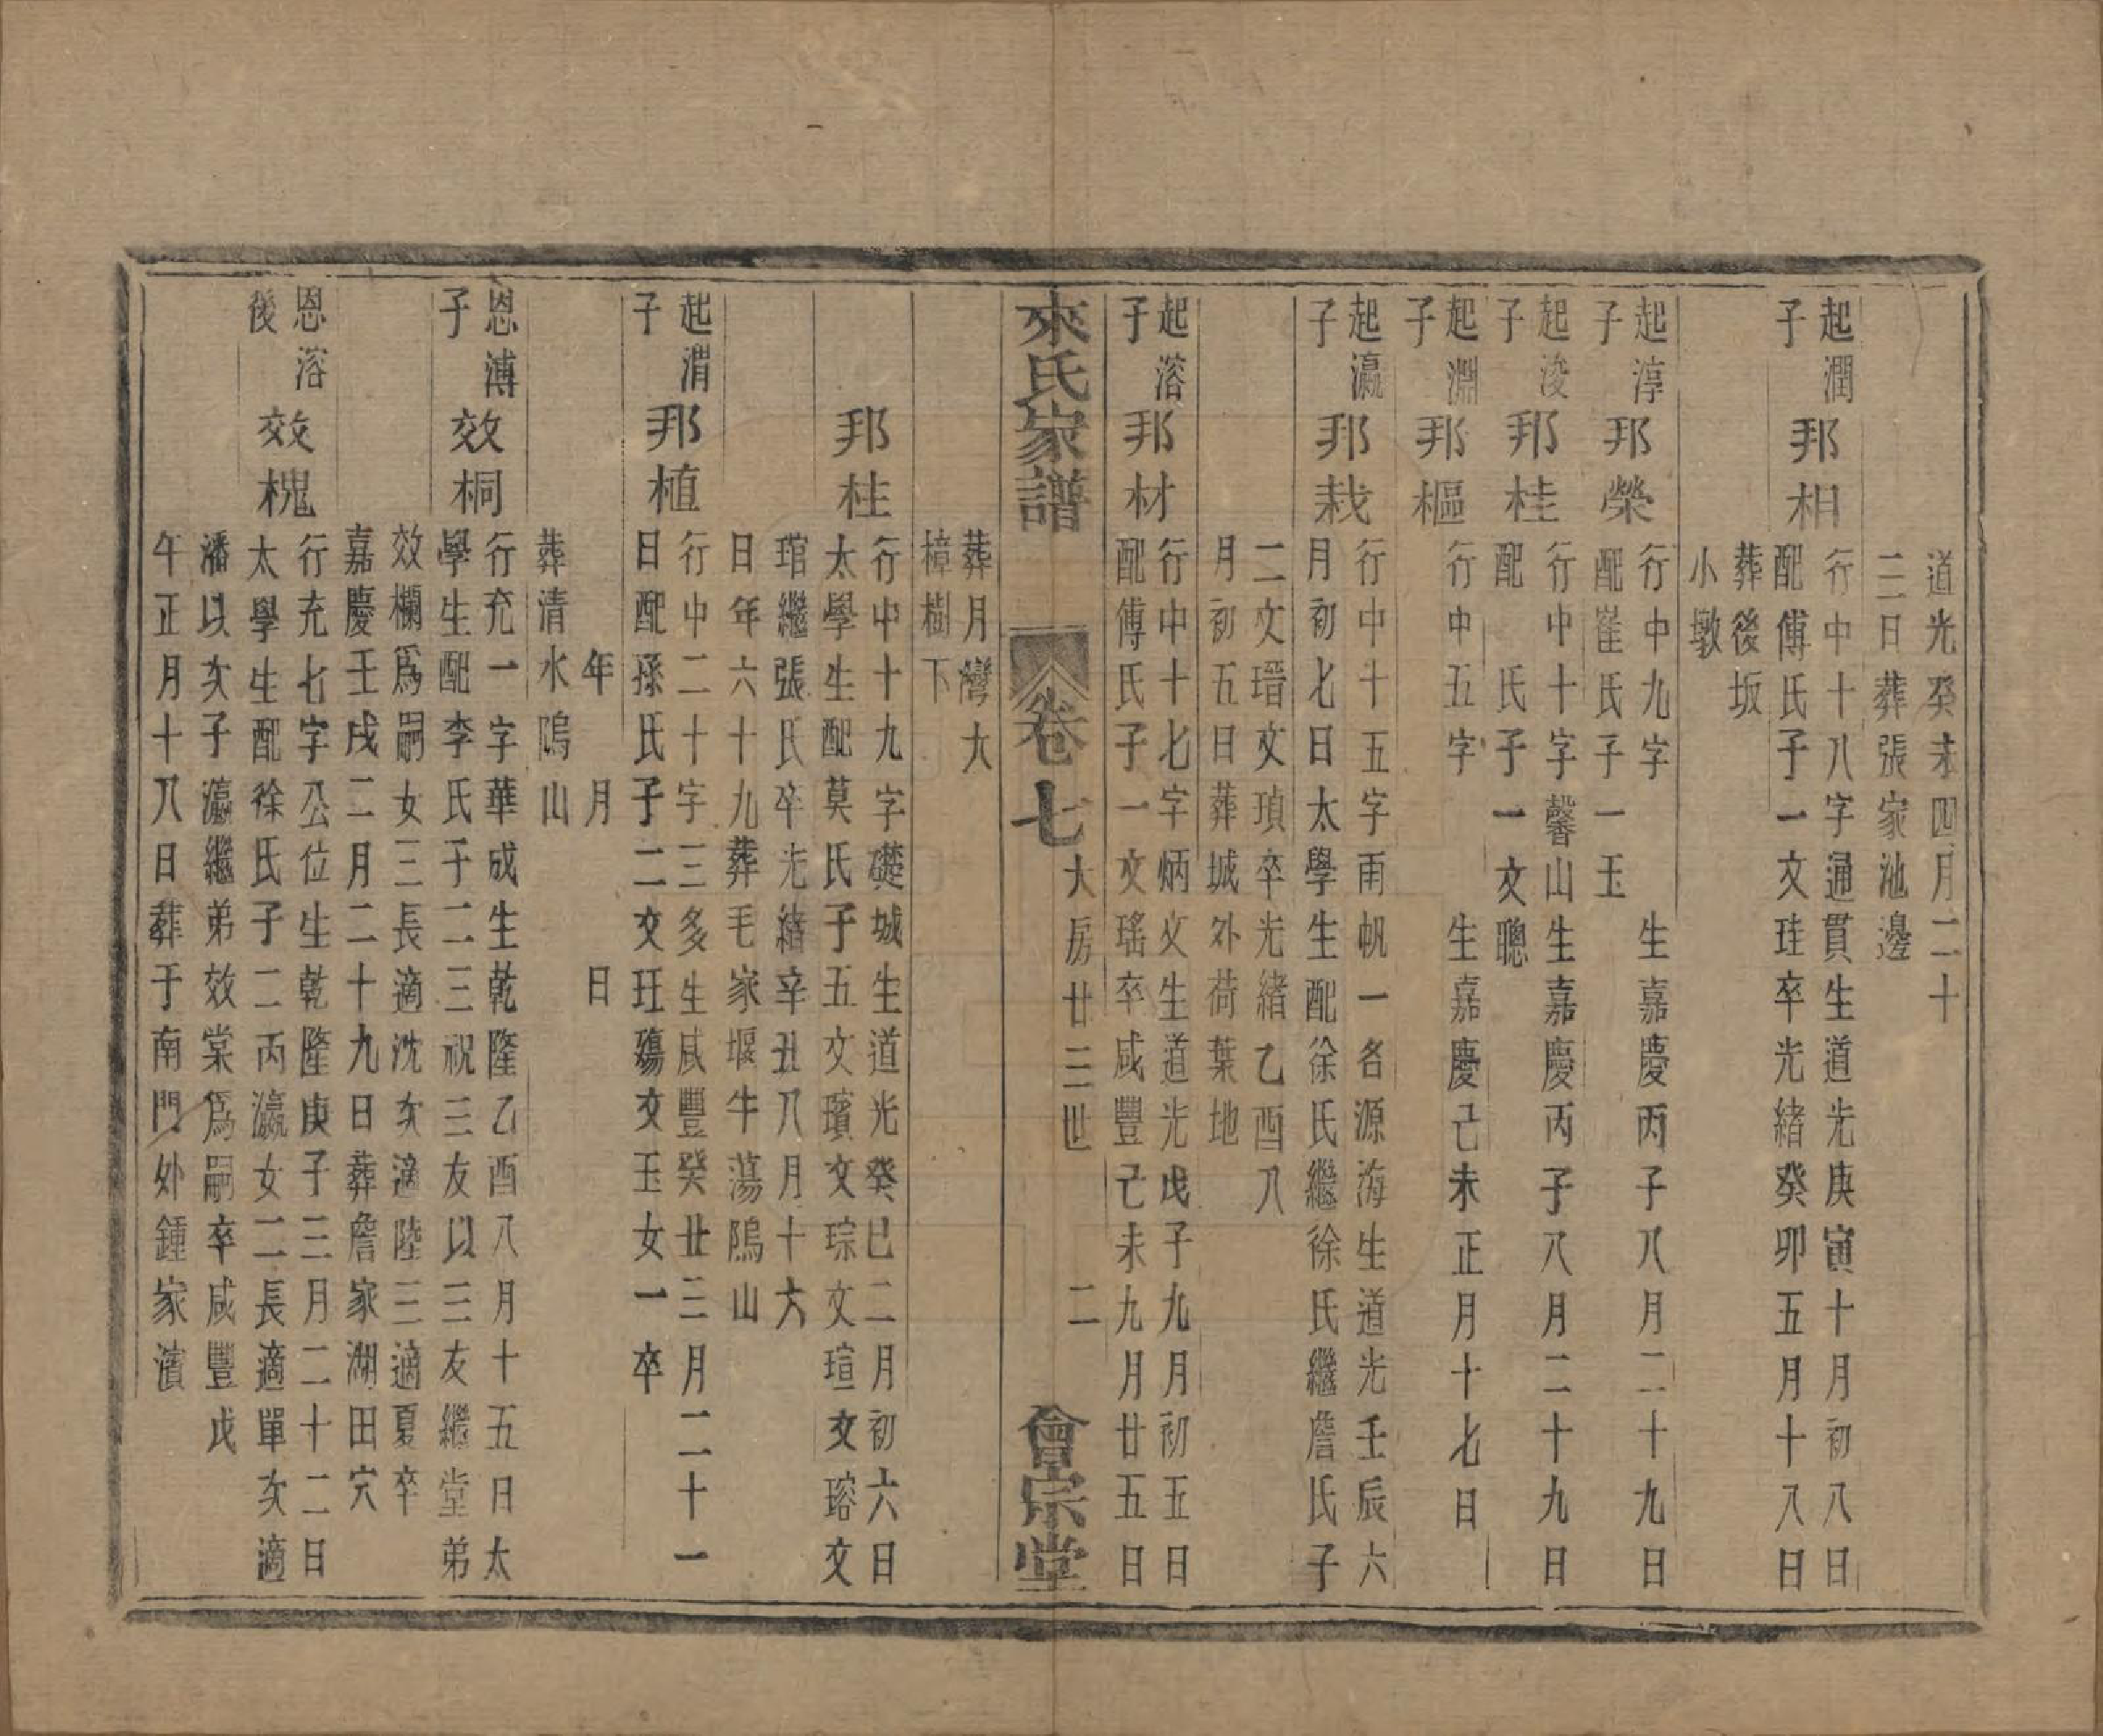 道光癸未四月二十
二日葬張家池邊
起潤
子
邦相
行中十八字通貫生道光庚寅十月初八日
配傅氏子一文珪卒光緒癸卯五月十八日
葬後坂
小墩
起淳
子
邦榮
行中九字 生嘉慶丙子八月二十九日
配崔氏子一玉
起浚
子
邦桂
行中十字馨山生嘉慶丙子八月二十九日
配 氏子一文聰
起淵
子
邦樞
行中五字 生嘉慶己未正月十七日
起瀛
子
邦栽
行中十五字雨帆一名源海生道光壬辰六
月初七日太學生配徐氏繼徐氏繼詹氏子
二文瑨文瑱卒光緒乙酉八
月初五日葬城外荷葉地
起溶
子
邦材
行中十七字炳文生道光戊子九月初五日
配傅氏子一文瑤卒咸豐己未九月廿五日
來氏家譜
卷七
大房廿三世 二
會宗堂
葬月灣大
樟樹下
邦柱
行中十九字礎城生道光癸巳二月初六日
太學生配莫氏子五文璸文琮文瑄文瑢文
琯繼張氏卒光緒辛丑八月十六
日年六十九葬毛家堰牛蕩隖山
起渭
子
邦植
行中二十字三多生咸豐癸廿三月二十一
日配孫氏子二文玨殤文玉女一卒
年 月 日
葬清水隖山
恩溥
子
效桐
行充一字華成生乾隆乙酉八月十五日太
學生配李氏子二三祝三友以三友繼堂弟
效欄爲嗣女三長適沈次適陸三適夏卒
嘉慶壬戌二月二十九日葬詹家湖田穴
恩溶
後
效槐
行充七字公位生乾隆庚子三月二十二日
太學生配徐氏子二丙瀛女二長適單次適
潘以次子瀛繼弟效棠爲嗣卒咸豐戊
午正月十八日葬于南門外鍾家濱